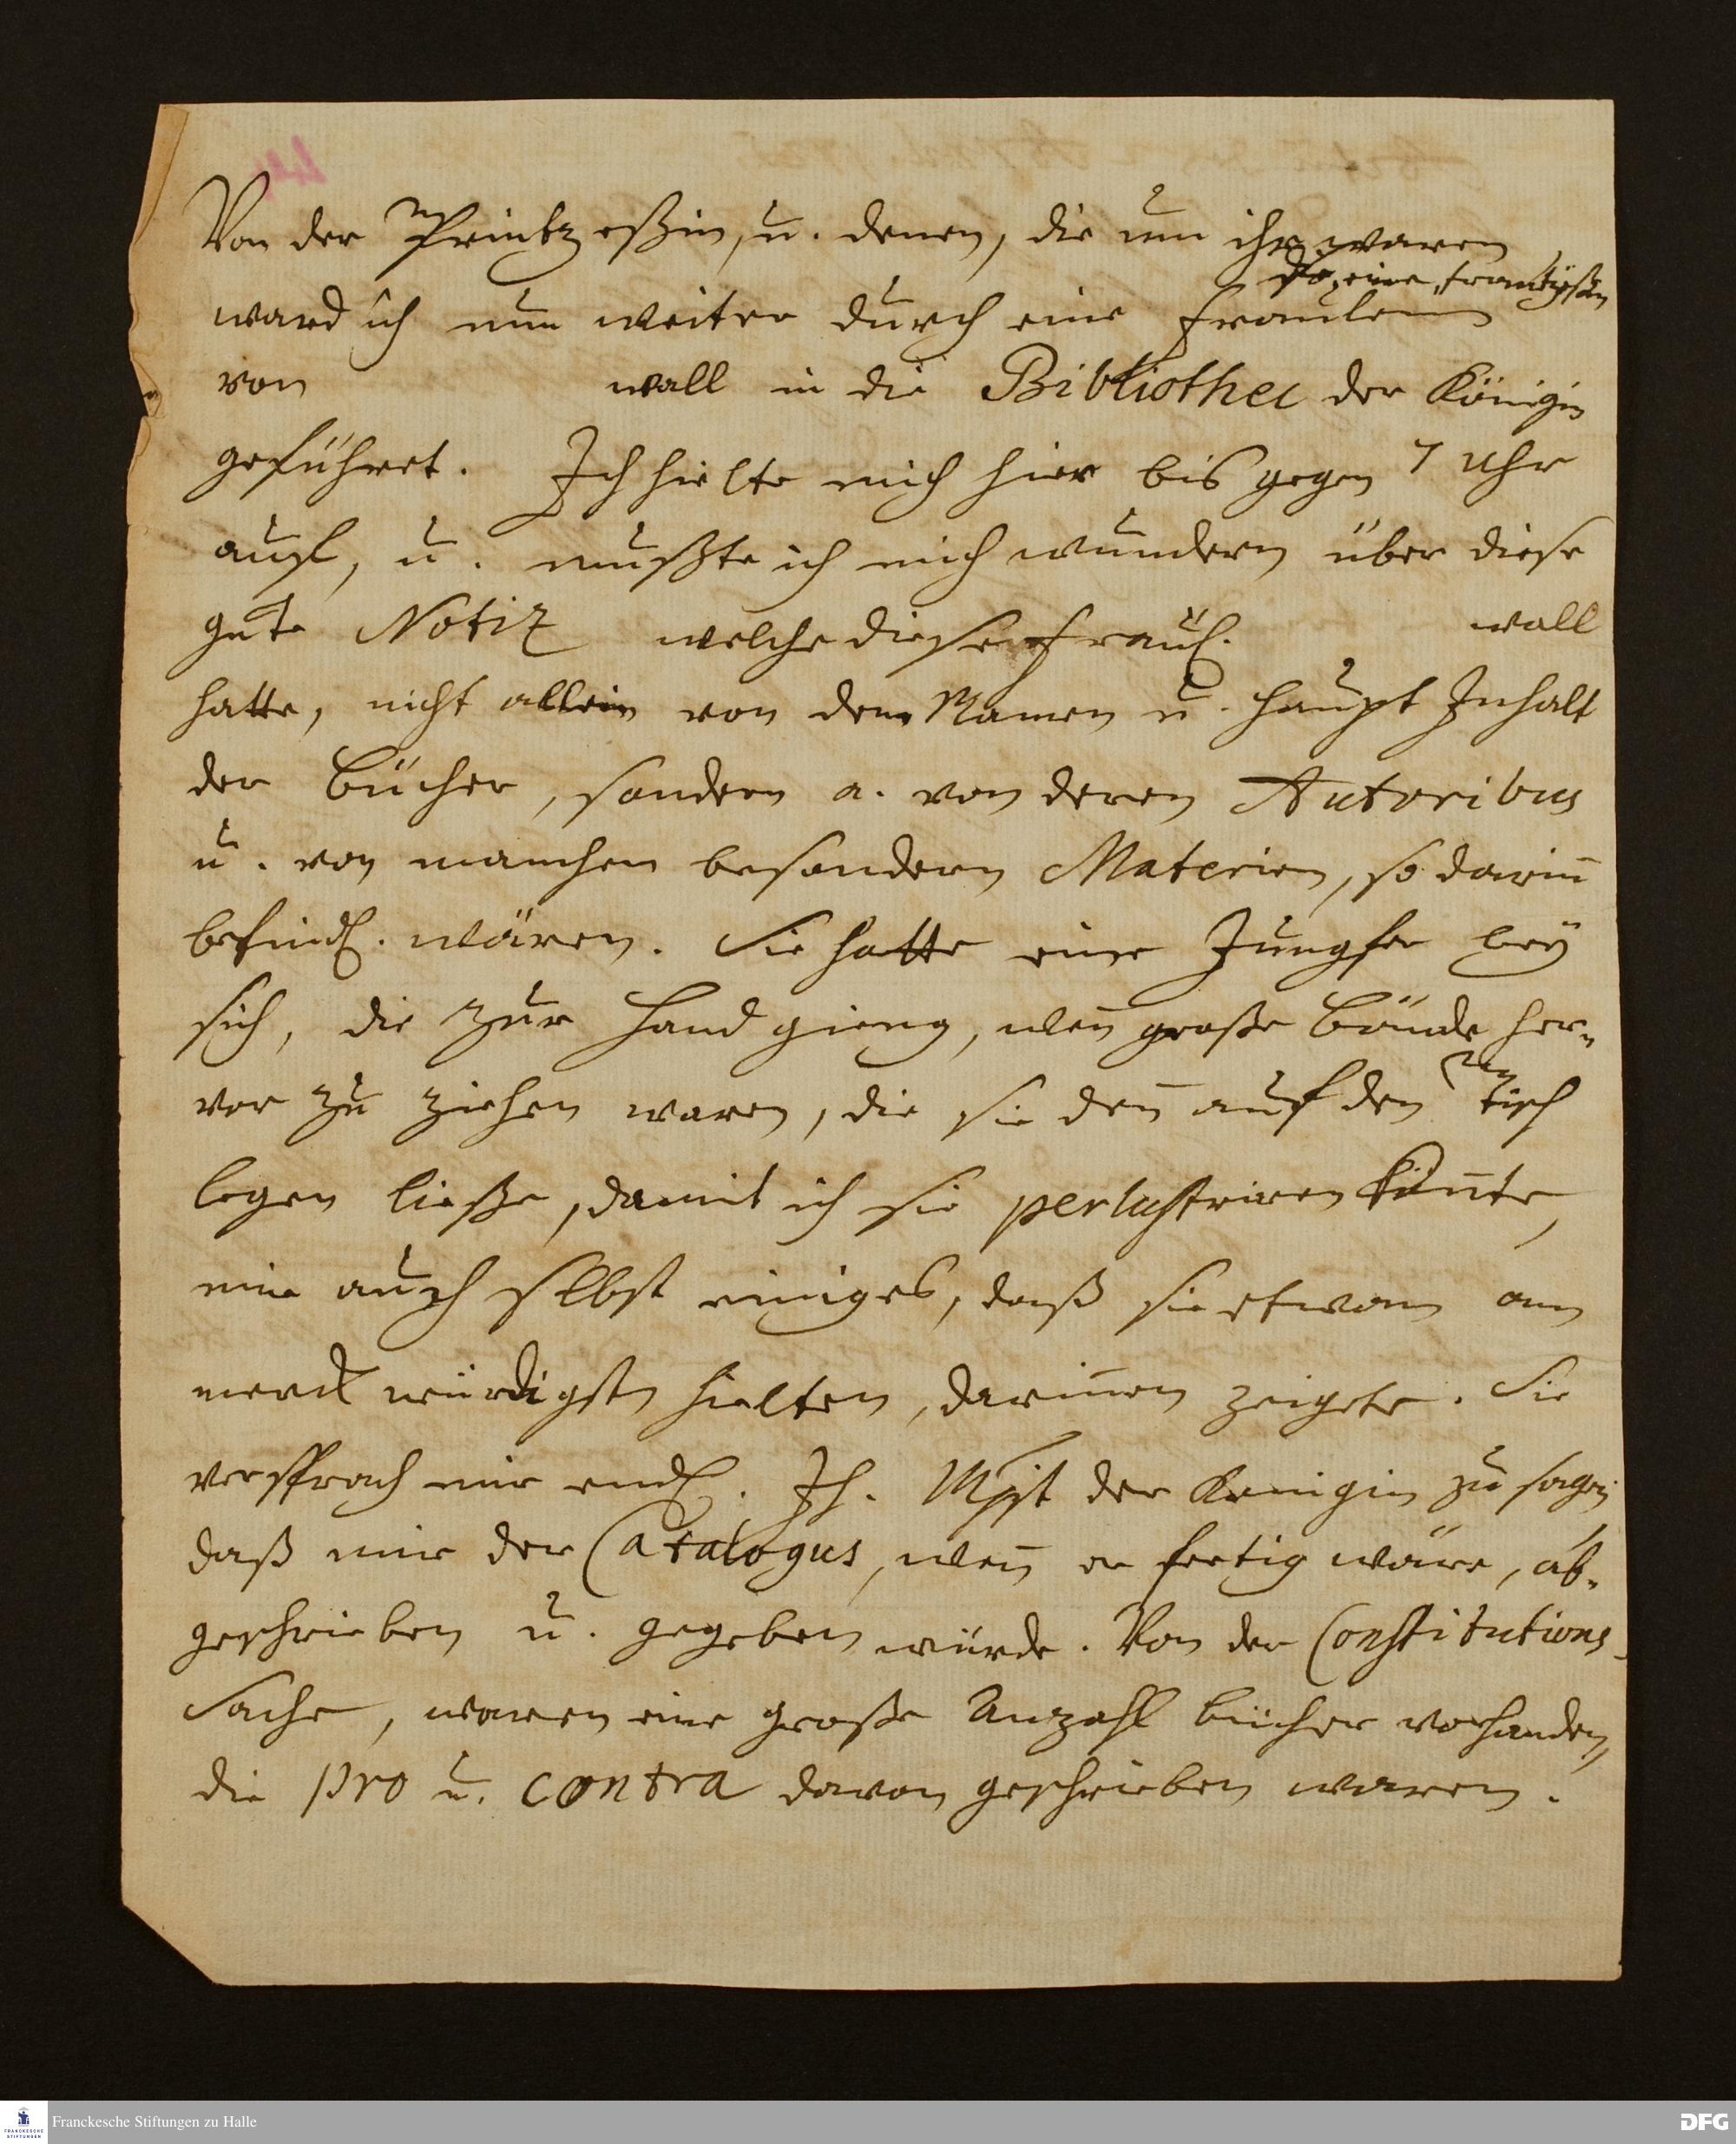 Von der Printzeßin, u. denen, die um ihr waren
so eine Frantzösin
ward ich nun weiter durch eine Fräulein
von wall in die Bibliothec der Königin
geführet. Ich hielte mich hier bis gegen 7 Uhr
auf, u. mußte ich mich wundern über diese
gute Notiz welche diese Fräul. wall
hatte, nicht allein von dem Namen u. Haupt Inhalt
der Bücher, sondern a. von deren Autoribus
u. von manchen besondern Materien, so darin̅
befindl. wären. Sie hatte eine Jungfer bey
sich, die zur Hand gieng, wen̅ große Bände her-
vor zu ziehen waren, die sie den̅ auf den Tisch
legen ließe, damit ich sie perlustriren kön̅te,
mir auch selbst einiges, daß sie etwann am
merckwürdigsten hielten, darin̅en zeigete. Sie
versprach mir endl. Ih. Mjst der Königin zu sagen
daß mir der Catalogus, wen̅ er fertig wäre, ab-
geschrieben u. gegeben würde. Von der Constitutions-
Sache, waren eine große Anzahl Bücher vorhanden,
die pro u. contra davon geschrieben waren.
Franckesche Stiftungen zu Halle
FRANCKESCHE STIFTUNGEN
DFG